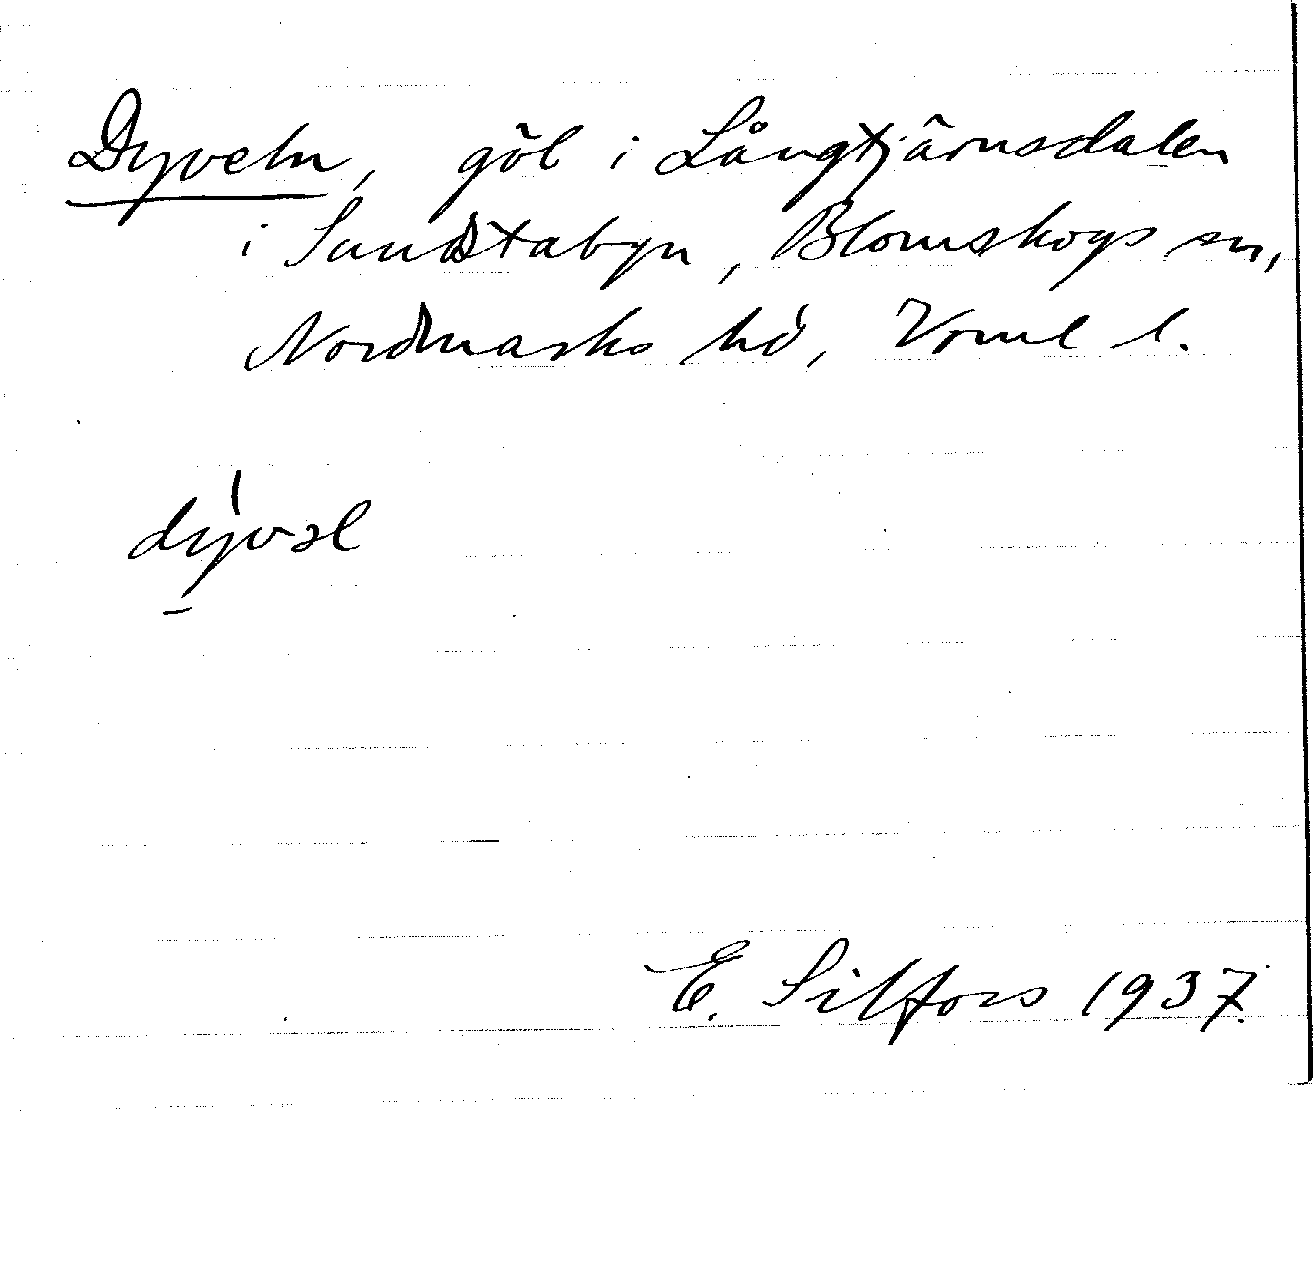 Dyveln, göl i Långtjärnsdalen
i Sandstabyn, Blomskogs sn,
Nordmarks hd, Vrml l.
dy̠vəl
E. Silfors 1937.